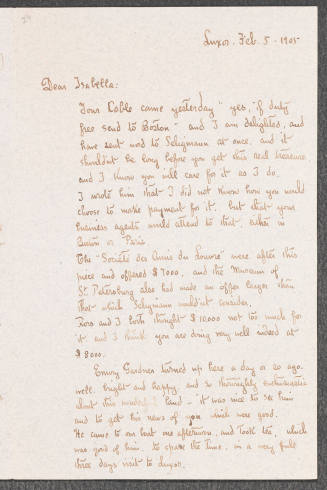 Luxor. Feb. 5 - 1905
Dear Isabella:
Your Cable came yesterday "yes, if duty
free send to Boston" and I am delighted, and
have sent word to Seligmann at once, and it
shouldn't be long before you get this real treasure
and I know you will care for it as I do.
I wrote him that I did not know how you would
choose to make payment for it, but that your
business agents would attend to that, either in
Boston or Paris
The "Société des Amis du Louvre" were after this
piece and offered $7000, and the Museum of
St. Petersburg also had made an offer larger than
that which Seligmann wouldn't consider.
Ross and I both thought $10000 not too much for
it and I think you are doing very well indeed at
$8000.
Gardner turned up here a day or so ago
well, bright and happy and so thoroughly enthusiastic
about this wonderful land - it was nice to see him
and to get his news of you which were good.
He came to our boat one afternoon, and took tea, which
was good of him, to spare the time, in a very full
three days visit to Luxor.